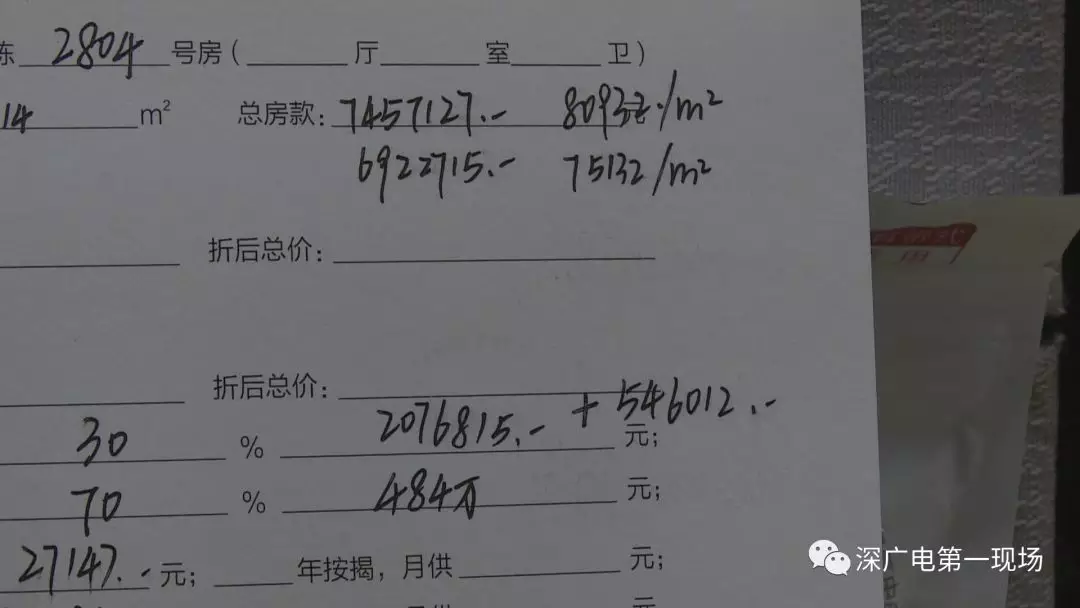 栋 2804 号房（ 厅 室 卫）
14 m² 总房款：7457127.- 80932./m²
6922715.- 75132/m²
折后总价：
折后总价：
30 % 2076815.- + 546012.- 元；
70 % 484万 元；
27147.- 元； 年按揭，月供 元；
元
深广电第一现场